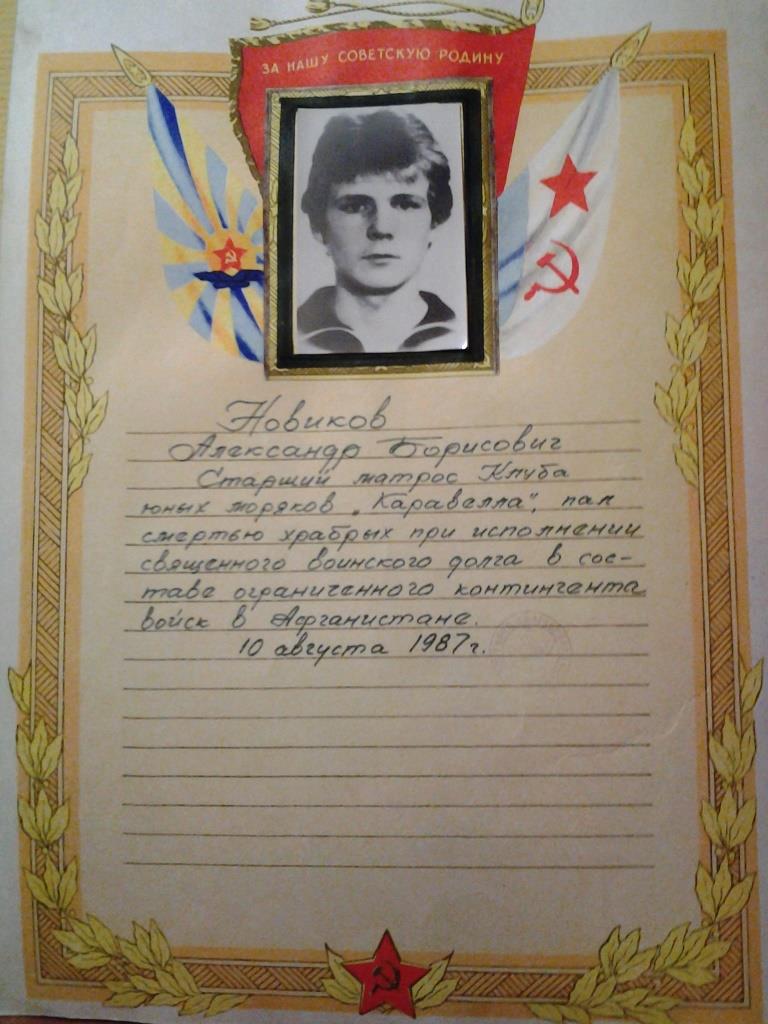 ЗА НАШУ СОВЕТСКУЮ РОДИНУ
Новиков
Александр Борисович
Старший матрос Клуба
юных моряков „Каравелла", пал
смертью храбрых при исполнении
священного воинского долга в сос-
таве ограниченного контингента
войск в Афганистане.
10 августа 1987г.